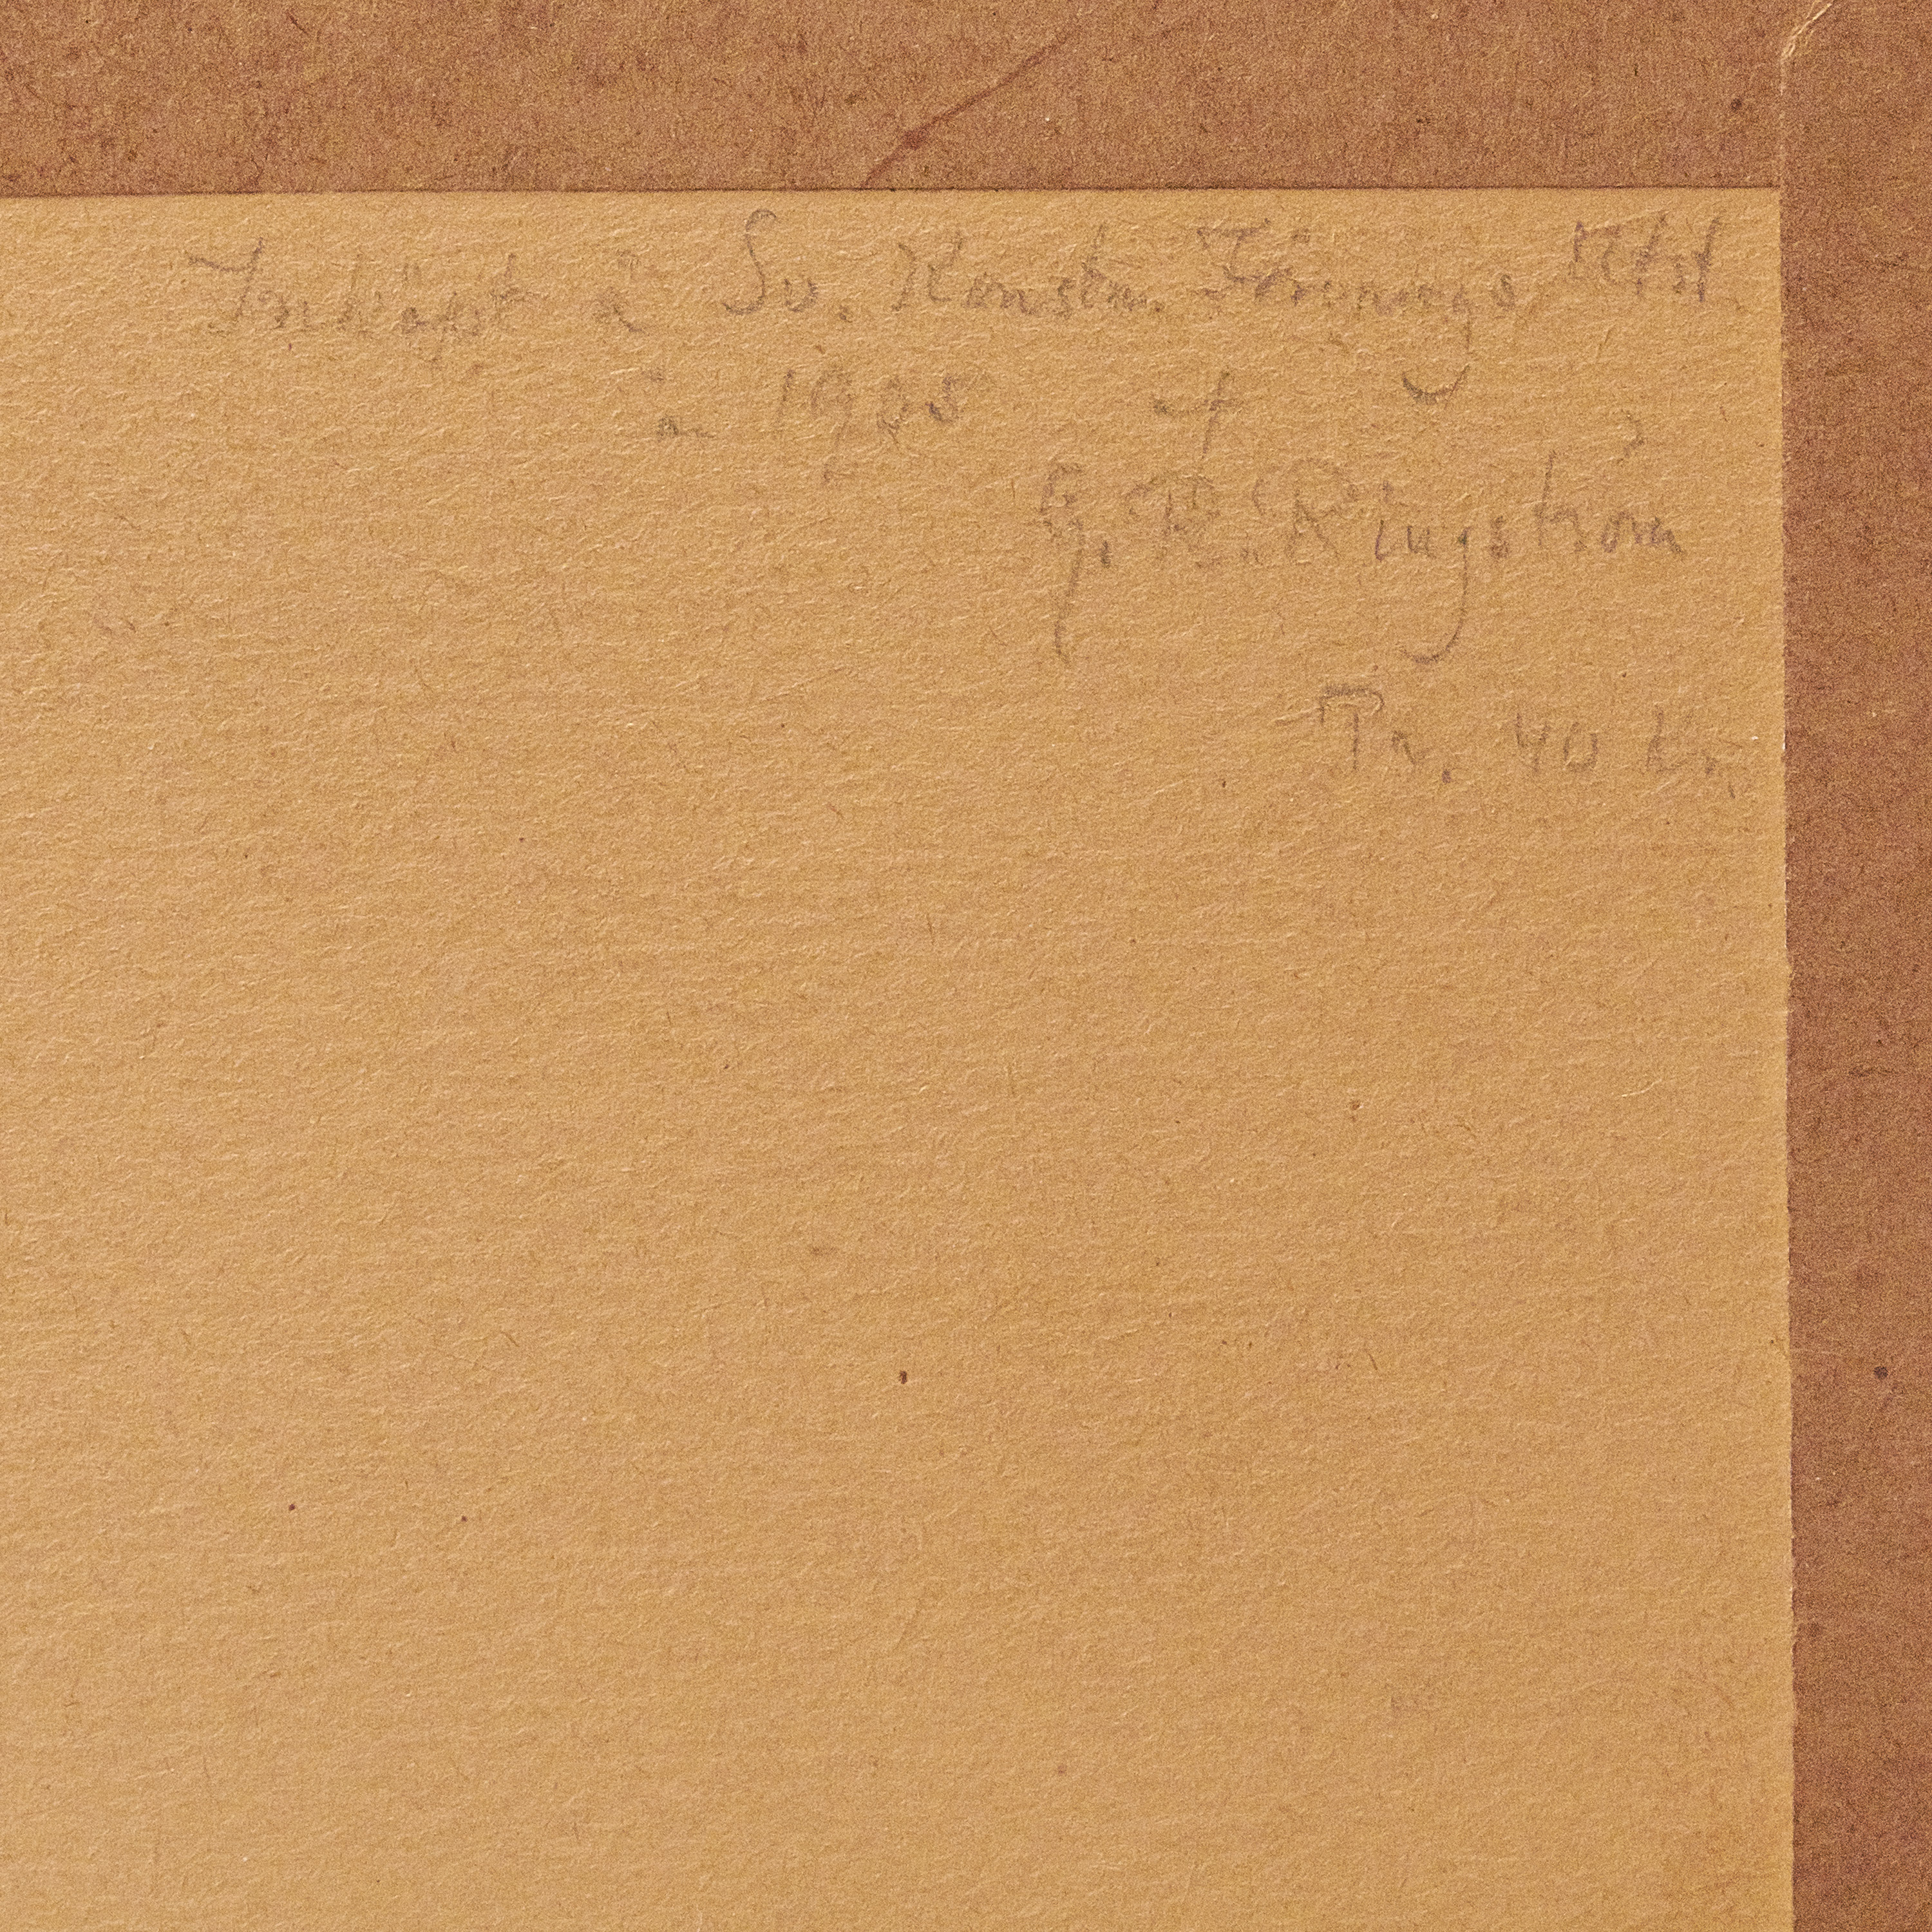 Inköpt å Sv. Konstn. Förenings Utst.
år 1905 af
G. R. Ringström
Pr. 40 kr.